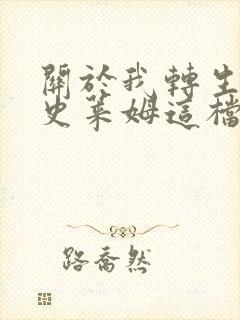 關於我轉生
史萊姆這檔
路喬然